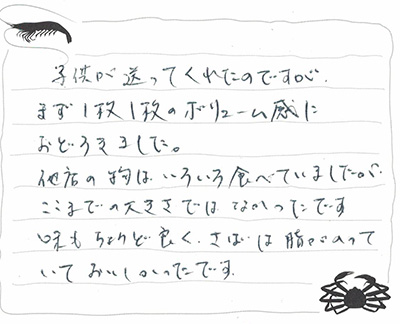 子供が送ってくれたのですが、
まず1枚1枚のボリューム感に
おどろきました。
他店の物はいろいろ食べていましたが
ここまでの大きさではなかったです
味もちょうど良く、さばは脂がのって
いておいしかったです。